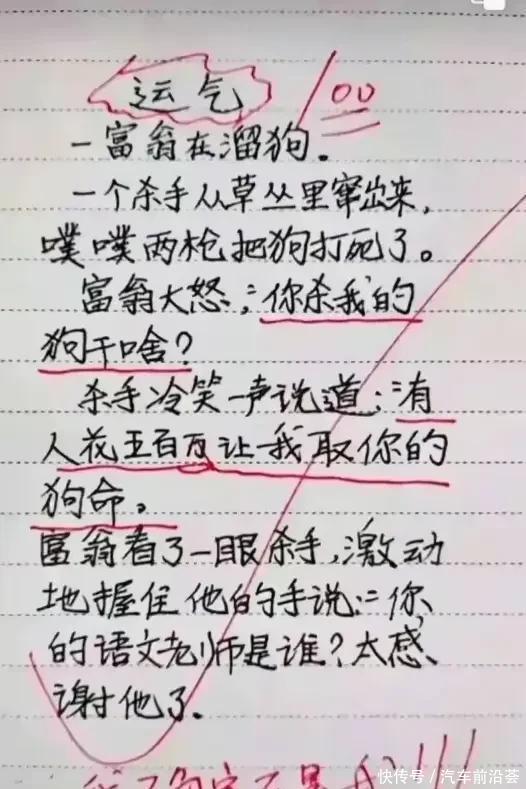 运气
100
一富翁在溜狗。
一个杀手从草丛里窜出来,
噗噗两枪把狗打死了。
富翁大怒:“你杀我的
狗干啥?
杀手冷笑一声说道:“有
人花五百万让我取你的
狗命。
富翁看了一眼杀手,激动
地握住他的手说:“你
的语文老师是谁?太感
谢他了.
!!!
快传号/汽车前沿荟